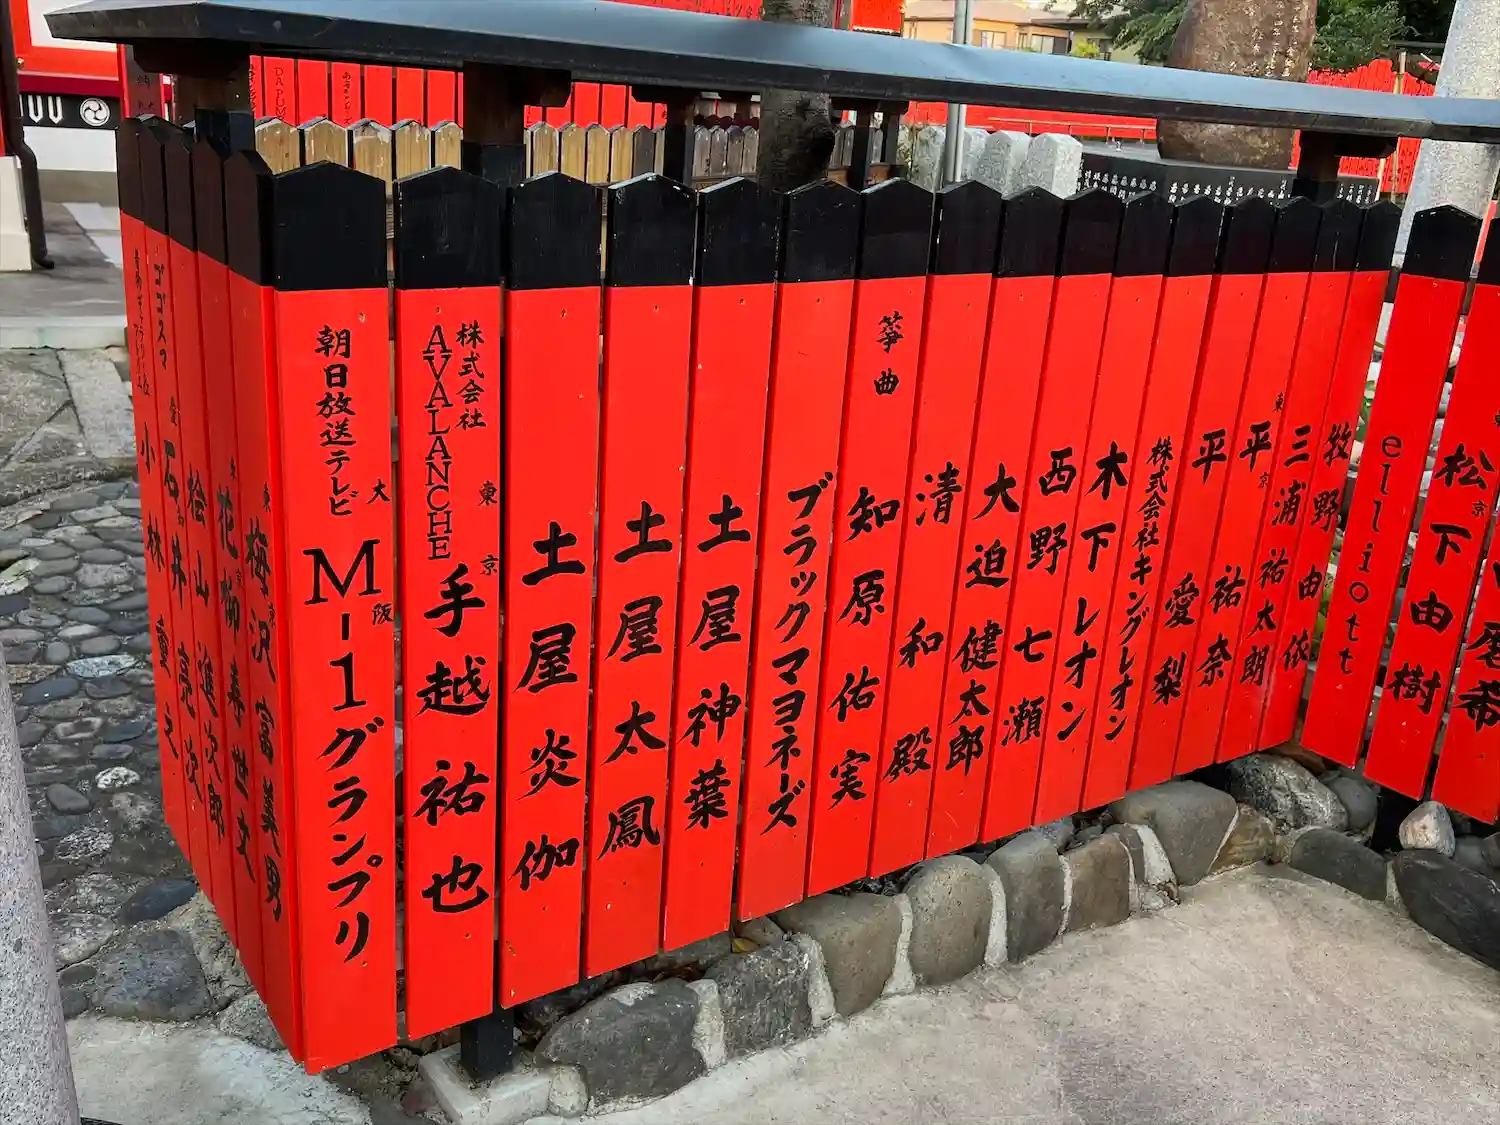 ゴゴスマ
小林
石井亮次
桧山進次郎
花柳寿世文
東京
梅沢富美男
朝日放送テレビ
大阪
M-1グランプリ
株式会社
AVALANCHE
東京
手越祐也
土屋炎伽
土屋太鳳
土屋神葉
ブラックマヨネーズ
箏曲
知原佑実
清和殿
大迫健太郎
西野七瀬
木下レオン
株式会社キングレオン
平愛梨
平祐奈
東京
平祐太朗
三浦由依
牧野
elliott
松下由樹
京
磨希
DA PUMP